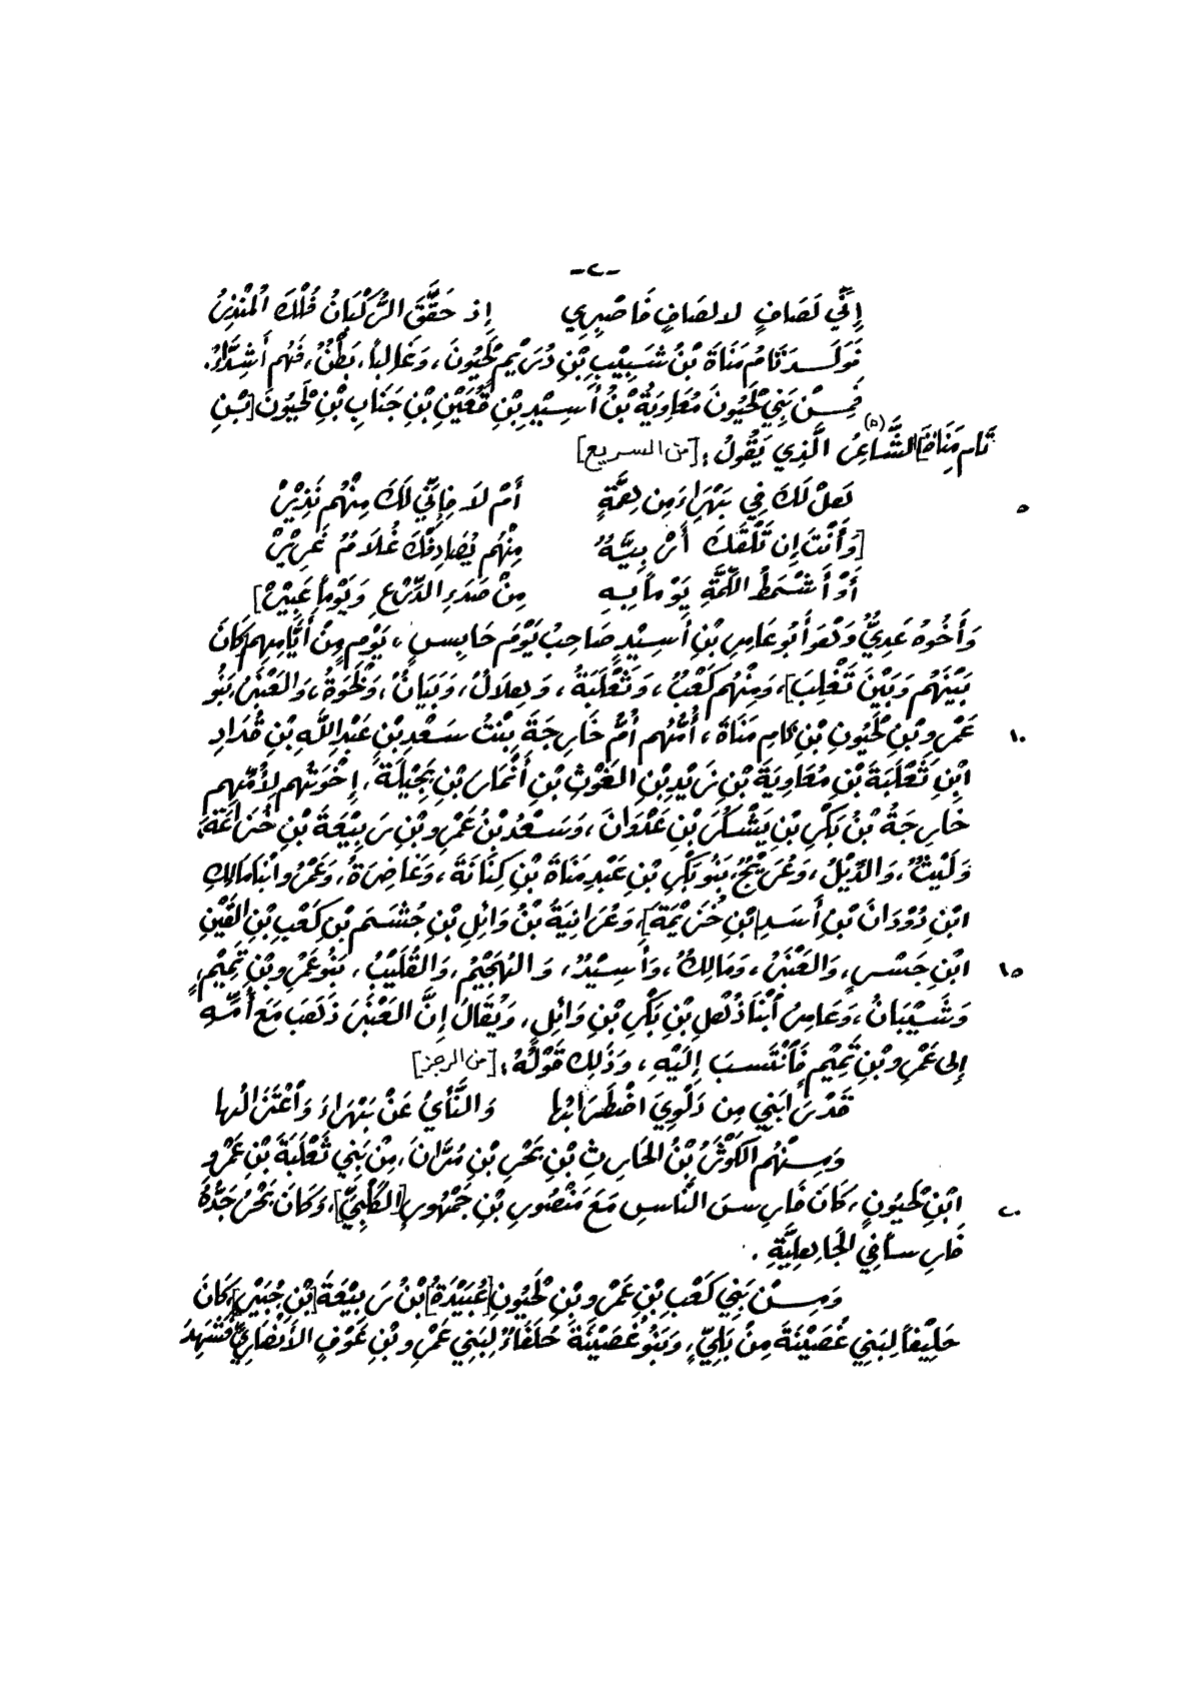 -٢-
إِنِّي لَصَافٍ لا لصَافٍ فَاصْبِرِي إذ حَقَّقَ الرُّكْبَانُ هُلْكَ الْمُنْذِرُ
فَوَلَدَ تَامُ مَنَاةَ بْنُ شَبِيْبِ بْنِ دُرَيْمٍ لَحْيُونَ، وَغَالِباً، بَطْنٌ، فَهُم أَشِدَّاءُ.
فَمِنْ بَنِي لَحْيُونَ مُعَاوِيَةُ بْنُ أَسِيْدِ بْنِ قُعَيْنِ بْنِ جَنَابِ بْنِ لَحْيُونَ [بْنِ
تَامِ مَنَاةَ] الشَّاعِرُ (٥) الَّذِي يَقُولُ: [من السريع]
لَعلْ لَكَ فِي بَهْرَاءَ مِن نِعْمَّةٍ أَمْ لاَ فإنِّي لَكَ مِنْهُم نَذِيْرْ ٥
[وَأَنْتَ إِن تَلْقَكَ أَرْبِيَّةٌ مِنْهُم يُصَادِفْكَ غُلاَمٌ غَرِيْرْ
أَوْ أَشْمَطُ اللِّمَّةِ يَوْماً بِهِ مِنْ صَدَءِ الدِّرْعِ وَيَوْماً عَبِيْرْ]
وَأَخُوهُ عَدِيٌّ وَهُوَ أَبُو عَامِرِ بْنِ أَسِيْدٍ صَاحِبُ يَوْمَ حَابِسٍ، يَوْمٍ مِنْ أَيَّامِهِم [كَانَ
بَيْنَهُم وَبَيْنَ تَغْلِبَ]، وَمِنْهُم كَعْبٌ، وَثَعْلَبَةُ، وَهِلاَلٌ، وَبَيَانٌ، وَلَحْوَةُ، وَالعَنْبَرُ، بَنُو
عَمْرِو بْنِ لَحْيُونِ بْنِ تَامِ مَنَاةَ، أُمُّهُم أُمُّ خَارِجَةَ بِنْتُ سَعْدِ بْنِ عَبْدِ اللَّهِ بْنِ قُدَادِ ١٠
ابْنِ ثَعْلَبَةَ بْنِ مُعَاوِيَةَ بْنِ زَيْدِ بْنِ الغَوْثِ بْنِ أَنْمَارِ بْنِ بَجِيْلَةَ، إِخْوَتُهُم لِأُمِّهِم
خَارِجَةُ بْنُ بَكْرِ بْنِ يَشْكُرَ بْنِ عَدْوَانَ، وَسَعْدُ بْنُ عَمْرِو بْنِ رَبِيْعَةَ بْنِ خُزَاعَةَ،
وَلَيْثٌ، وَالدِّيْلُ، وَعُرَيْجٌ، بَنُو بَكْرِ بْنِ عَبْدِ مَنَاةَ بْنِ كِنَانَةَ، وَغَاضِرَةُ، وَعَمْرٌو ابْنَا مَالِكِ
ابْنِ دُوْدَانَ بْنِ أَسَدِ [بْنِ خُزَيْمَةَ]، وَعُرَانِيَةُ بْنُ وَائِلِ بْنِ جُشَمَ بْنِ كَعْبِ بْنِ القَيْنِ
ابْنِ جَسْرٍ، وَالعَنْبَرُ، وَمَالِكٌ، وَأَسِيْدٌ، وَالهُجَيْمُ، وَالقُلَيْبُ، بَنُو عَمْرِو بْنِ تَمِيْمٍ، ١٥
وَشَيْبَانُ، وَعَامِرٌ ابْنَا ذُهْلِ بْنِ بَكْرِ بْنِ وَائِلٍ، وَيُقَالُ إِنَّ العَنْبَرَ ذَهَبَ مَعَ أُمِّهِ
إلى عَمْرِو بْنِ تَمِيْمٍ فَانْتَسَبَ إِلَيْهِ، وَذَلِكَ قَوْلُهُ: [من الرجز]
قَدْ رَابَنِي مِن دَلْوِيَ اضْطِرَابُها وَالنَّأْيُ عَنْ بَهْرَاءَ وَاغْتَرَابُها
وَمِنْهُم الكَوْثَرُ بْنُ الحَارِثِ بْنِ بَحْرِ بْنِ مُرَّانَ، مِنْ بَنِي ثَعْلَبَةَ بْنِ عَمْرِو
ابْنِ لَحْيُونٍ، كَانَ فَارِسَ النَّاسِ مَعَ مَنْصُورِ بْنِ جَمْهُورٍ [الكَلْبِيِّ]، وَكَانَ بَحْرٌ جَدُّهُ ٢٠
فَارِساً فِي الجَاهِلِيَّةِ.
وَمِنْ بَنِي كَعْبِ بْنِ عَمْرِو بْنِ لَحْيُونَ [عُبَيْدَةُ] بْنُ رَبِيْعَةَ [بْنِ جُبَيْرٍ] كَانَ
حَلِيْفاً لِبَنِي غُصَيْنَةَ مِنْ بَلِيٍّ، وَبَنُو غُصَيْنَةَ حُلَفَاءُ لِبَنِي عَمْرِو بْنِ عَوْفٍ الأَنْصَارِيِّ فَشَهِدَ